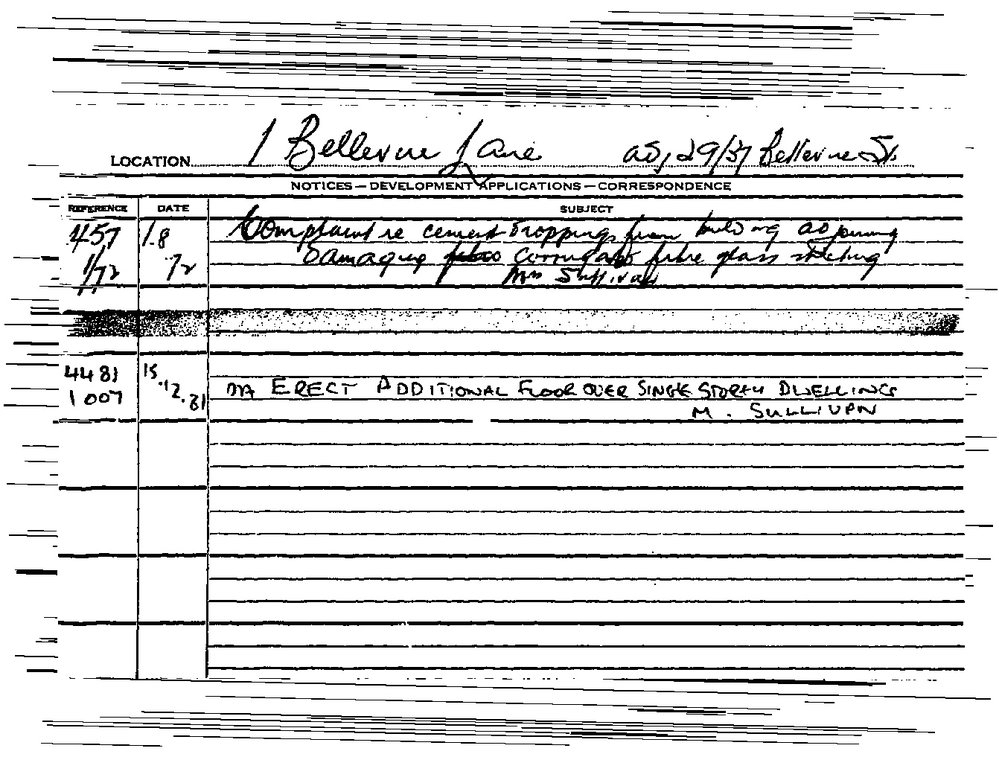 LOCATION 1 Bellevue Lane 29/37 Bellevue St.
NOTICES — DEVELOPMENT APPLICATIONS — CORRESPONDENCE
REFERENCE DATE SUBJECT
457 1.8 Complaint re cement droppings from building adjoining
1/72 72 Damaging fibro corrugated fibre glass sheeting
Mrs Sullivan
4481 15
1007 .12.81 DA ERECT ADDITIONAL FLOOR OVER SINGLE STOREY DWELLINGS
M. SULLIVAN